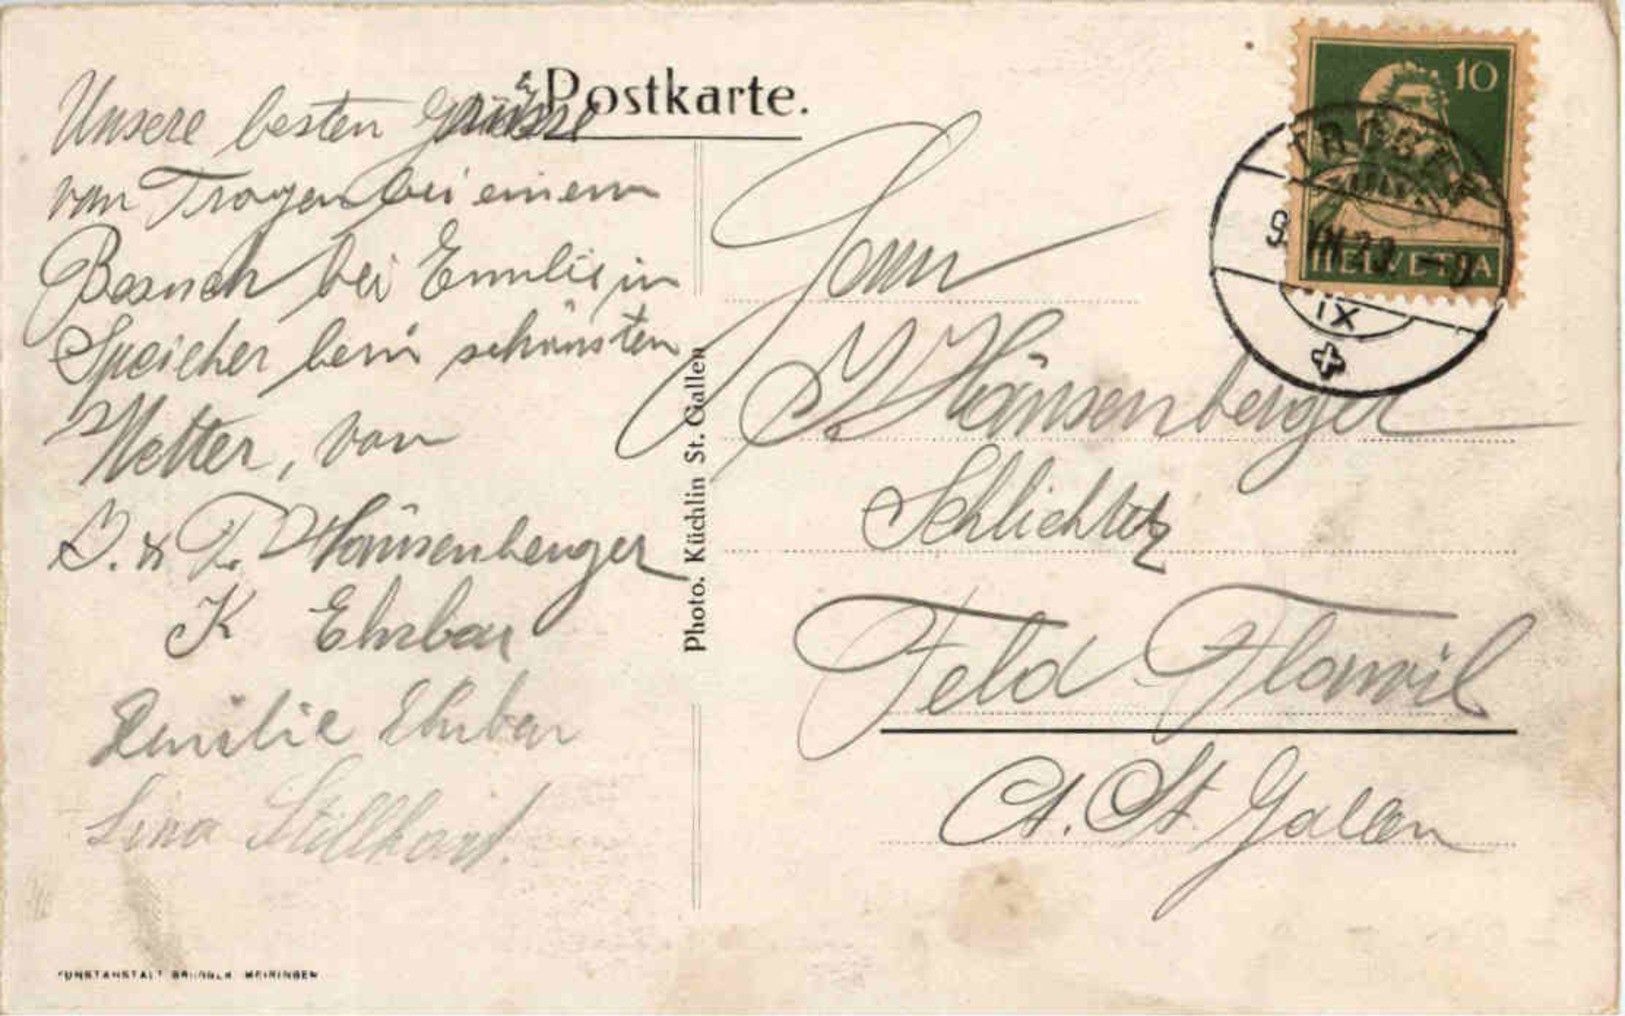 Postkarte.
Unsere besten Grüsse
von Trogen bei einem
Besuch bei Emilie in
Speicher beim schönsten
Wetter, von
B. & F. Hänsenberger
K Ehrbar
Emilie Ehrbar
Lina Stillhard.
KUNSTANSTALT BRÜGGER MEIRINGEN
Photo. Küchlin St. Gallen
10
HELVETIA
TROGEN
IX
Herrn
J. Hänsenberger
Feld Flawil
Ct. St. Gallen